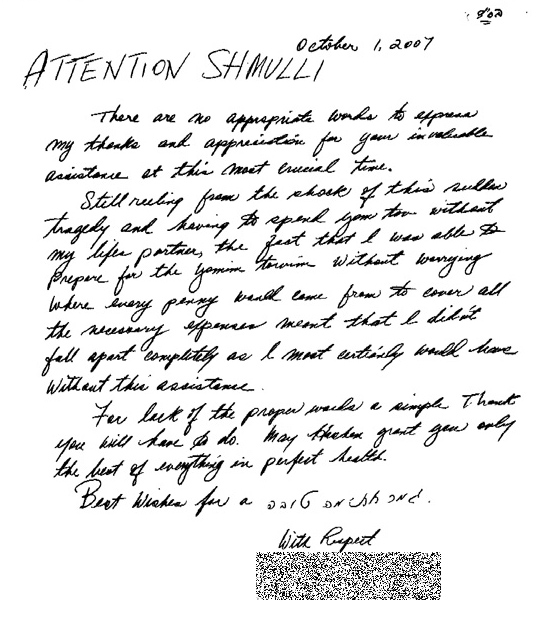 בס"ד
October 1, 2007
ATTENTION SHMULLI
There are no appropriate words to express
my thanks and appreciation for your invaluable
assistance at this most crucial time.
Still reeling from the shock of this sudden
tragedy and having to spend yom tov without
my lifes partner, the fact that I was able to
prepare for the yomim tovim without worrying
where every penny would come from to cover all
the necessary expenses meant that I didn't
fall apart completely as I most certainly would have
without this assistance.
For lack of the proper words a simple Thank
you will have to do. May Hashem grant you only
the best of everything in perfect health.
Best Wishes for a גמר חתימה טובה.
With Respect